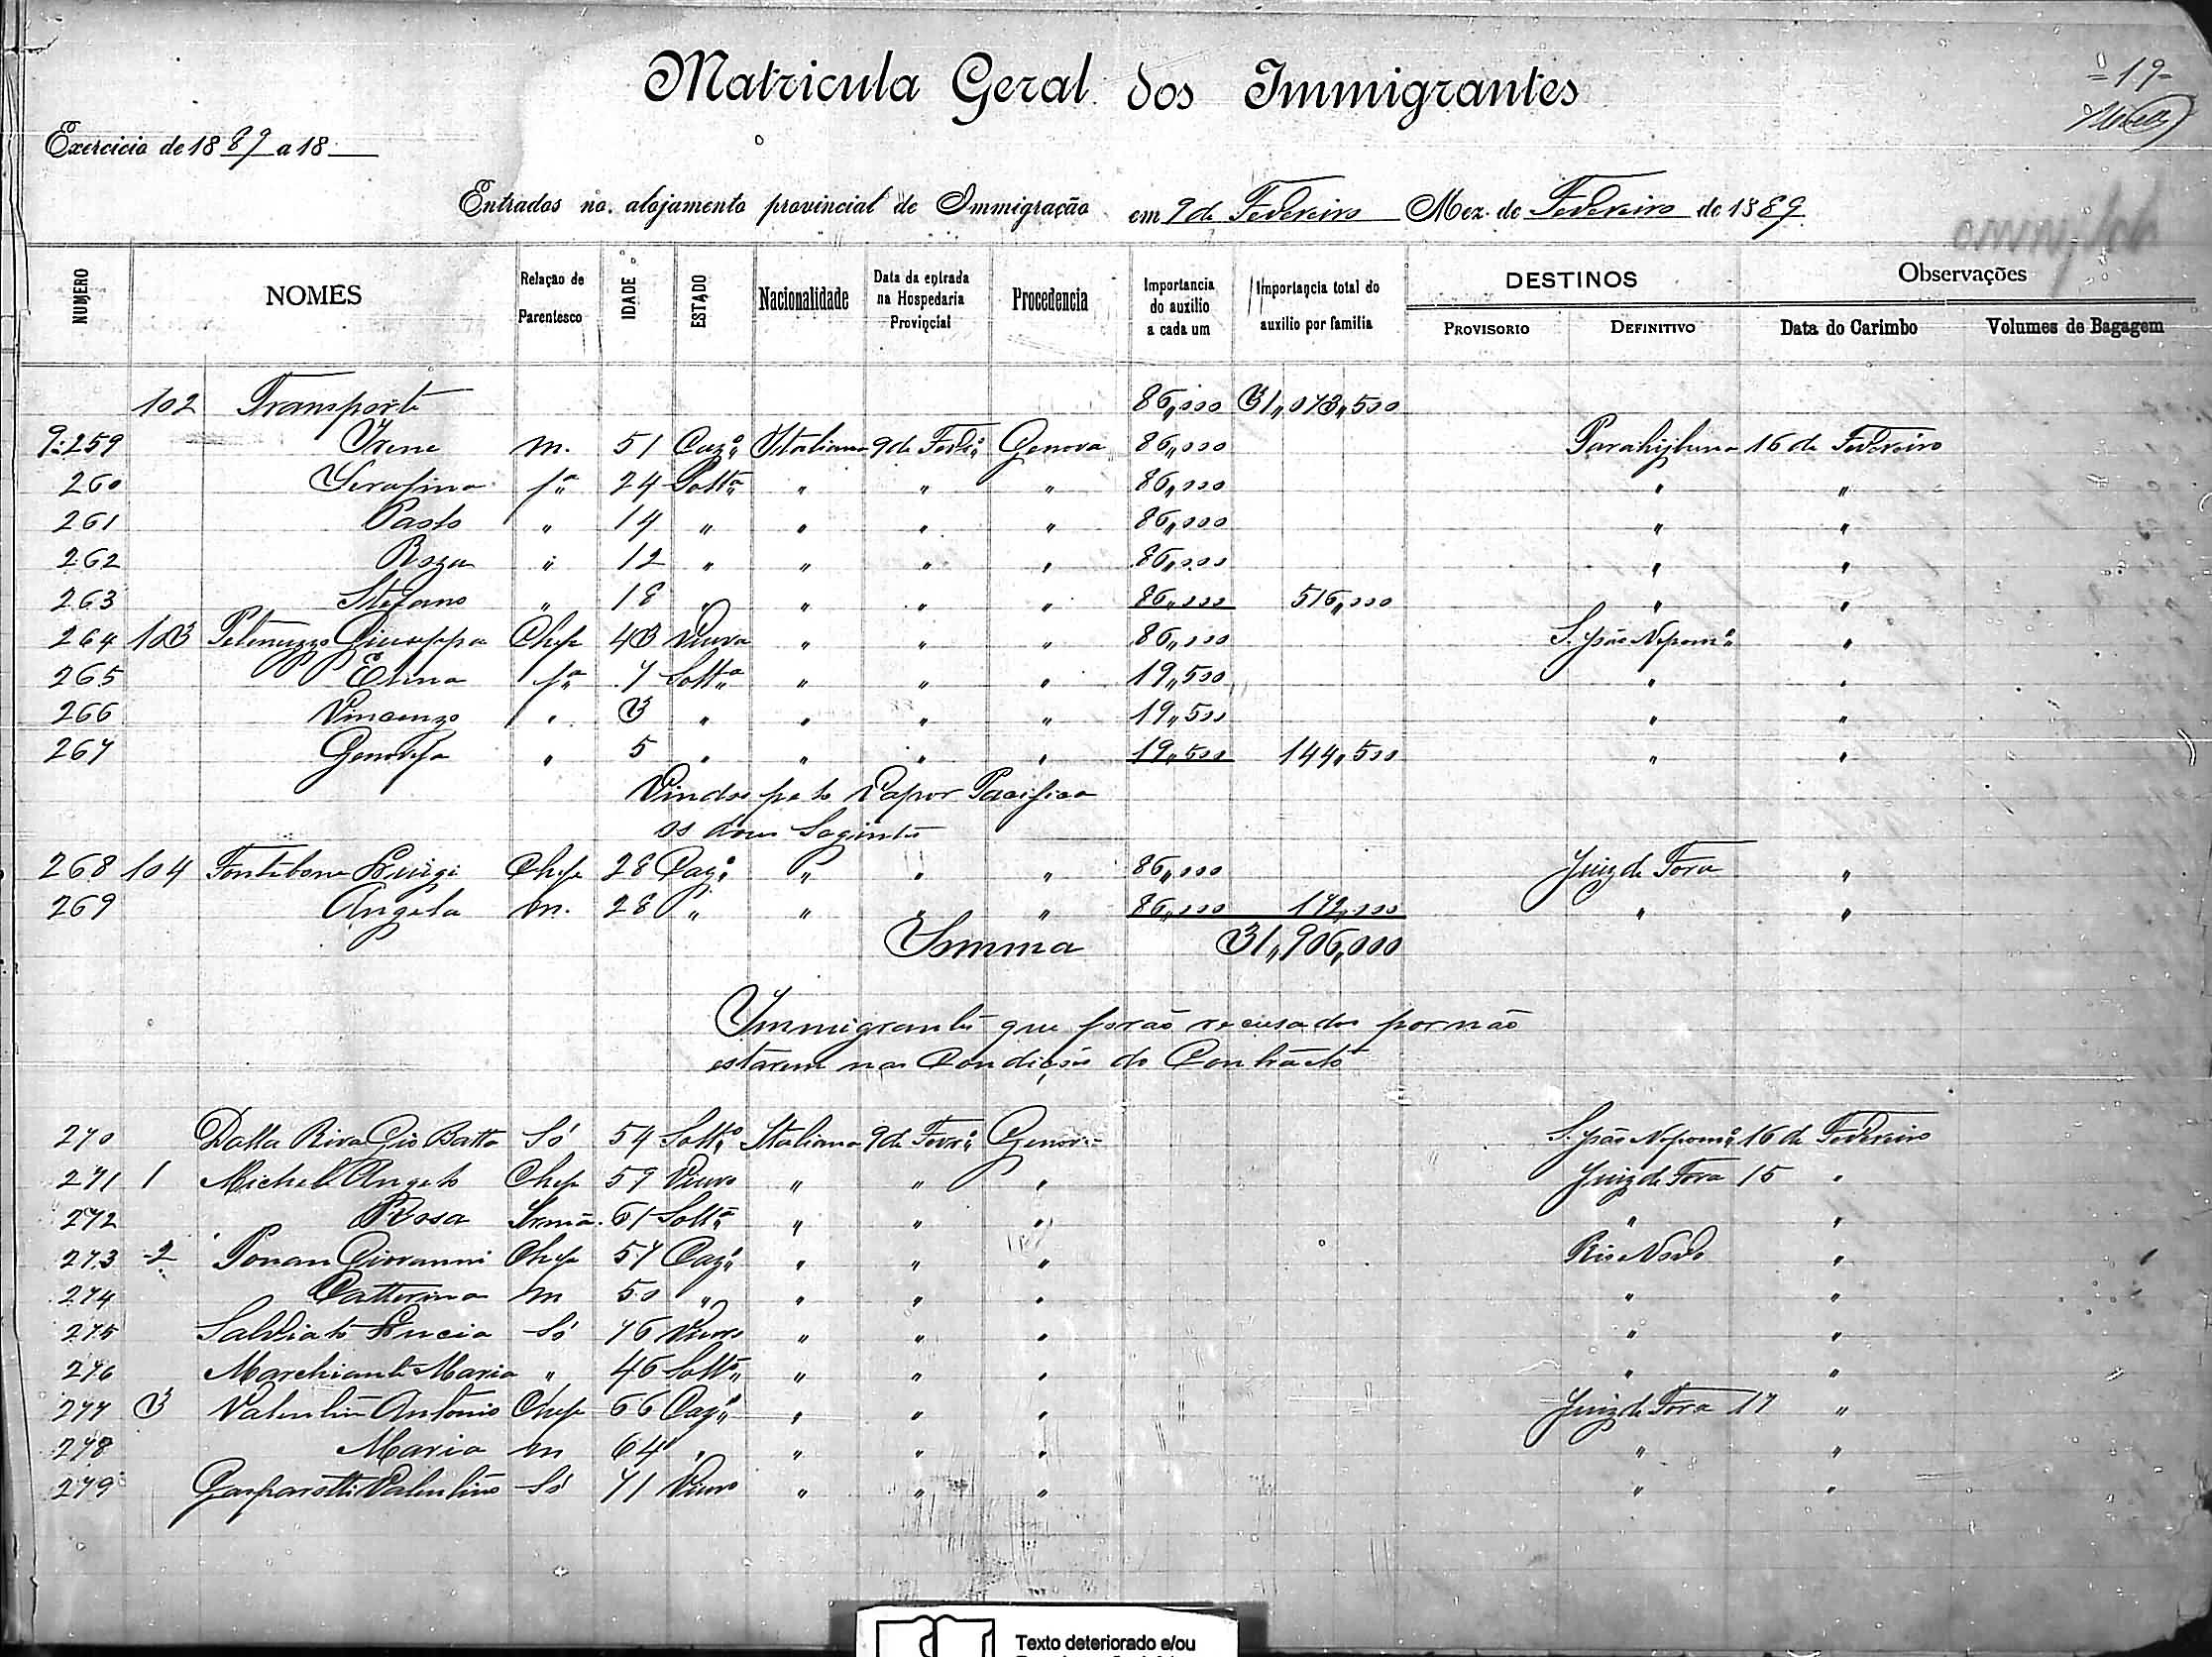 Matricula Geral dos Immigrantes
-19-
Exercicio de 1889 a 18
Entrados no alojamento provincial de Immigração em 9 de Fevereiro Mez de Fevereiro de 1889
NUMERO NOMES Relação de Parentesco IDADE ESTADO Nacionalidade Data da entrada na Hospedaria Provincial Procedencia Importancia do auxilio a cada um Importancia total do auxilio por familia DESTINOS PROVISORIO DEFINITIVO Observações Data do Carimbo Volumes de Bagagem
102 Transporte 86,000 31,073,500
9:259 Irene m. 51 Cazº Italiana 9 de Fevrº Genova 86,000 Parahybuna 16 de Fevereiro
260 Serafina fª 24 Soltª " " " 86,000 " "
261 Paolo " 14 " " " " 86,000 " "
262 Roza " 12 " " " " 86,000 " "
263 Stefano " 18 " " " " 86,000 516,000 " "
264 103 Giuseppa Chefe 43 Viuva " " " 86,000 S. João Nepomº "
265 Elena fª 7 Soltª " " " 19,500 " "
266 Vincenzo " 3 " " " " 19,500 " "
267 Genovefa " 5 " " " " 19,500 144,500 " "
Vindos pelo Vapor Pacifica
os dous Seguintes
268 104 Fontebone Luigi Chefe 28 Cazº " " " 86,000 Juiz de Fora "
269 Angela m. 28 " " " " 86,000 172,000 " "
Somma 31,906,000
Immigrantes que forão recusados por não
estarem nas Condições do Contracto
270 Dalla Riva Gio Batta Só 54 Soltº Italiana 9 de Fevrº Genova S. João Nepomº 16 de Fevereiro
271 1 Michel Angelo Chefe 59 Viuvo " " " Juiz de Fora 15 "
272 Rosa Irmã 61 Soltª " " " " "
273 2 Ponan Giovanni Chefe 57 Cazº " " " Rio Novo "
274 Catterina m 50 " " " " " "
275 Salviato Lucia Só 76 Viuva " " " " "
276 Marchiante Maria " 46 Soltª " " " " "
277 3 Valentin Antonio Chefe 66 Cazº " " " Juiz de Fora 17 "
278 Maria m 64 " " " " " "
279 Gasparotti Valentino Só 71 Viuvo " " " " "
Texto deteriorado e/ou